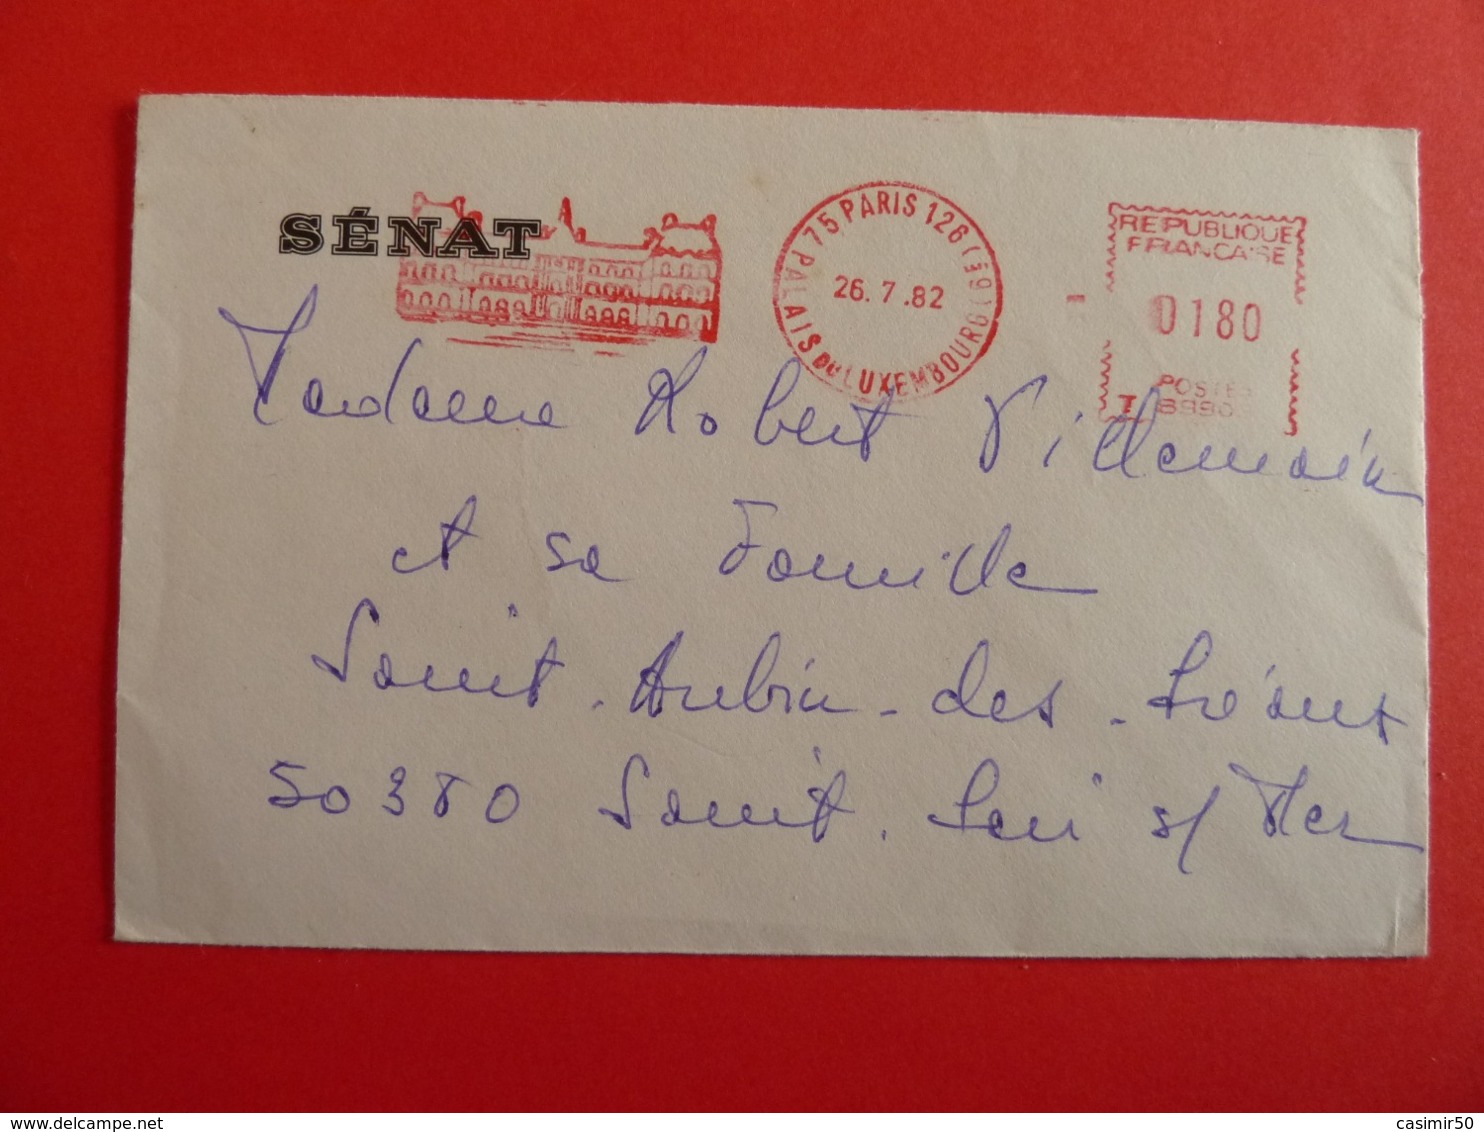 SÉNAT
75 PARIS 126 (6e)
PALAIS DU LUXEMBOURG
26.7.82
REPUBLIQUE
FRANCAISE
0180
POSTES
T
Madame Robert Villemain
et sa Famille
Saint-Aubin-des-Préaux
50380 Saint.Pair s/Mer
casimir50